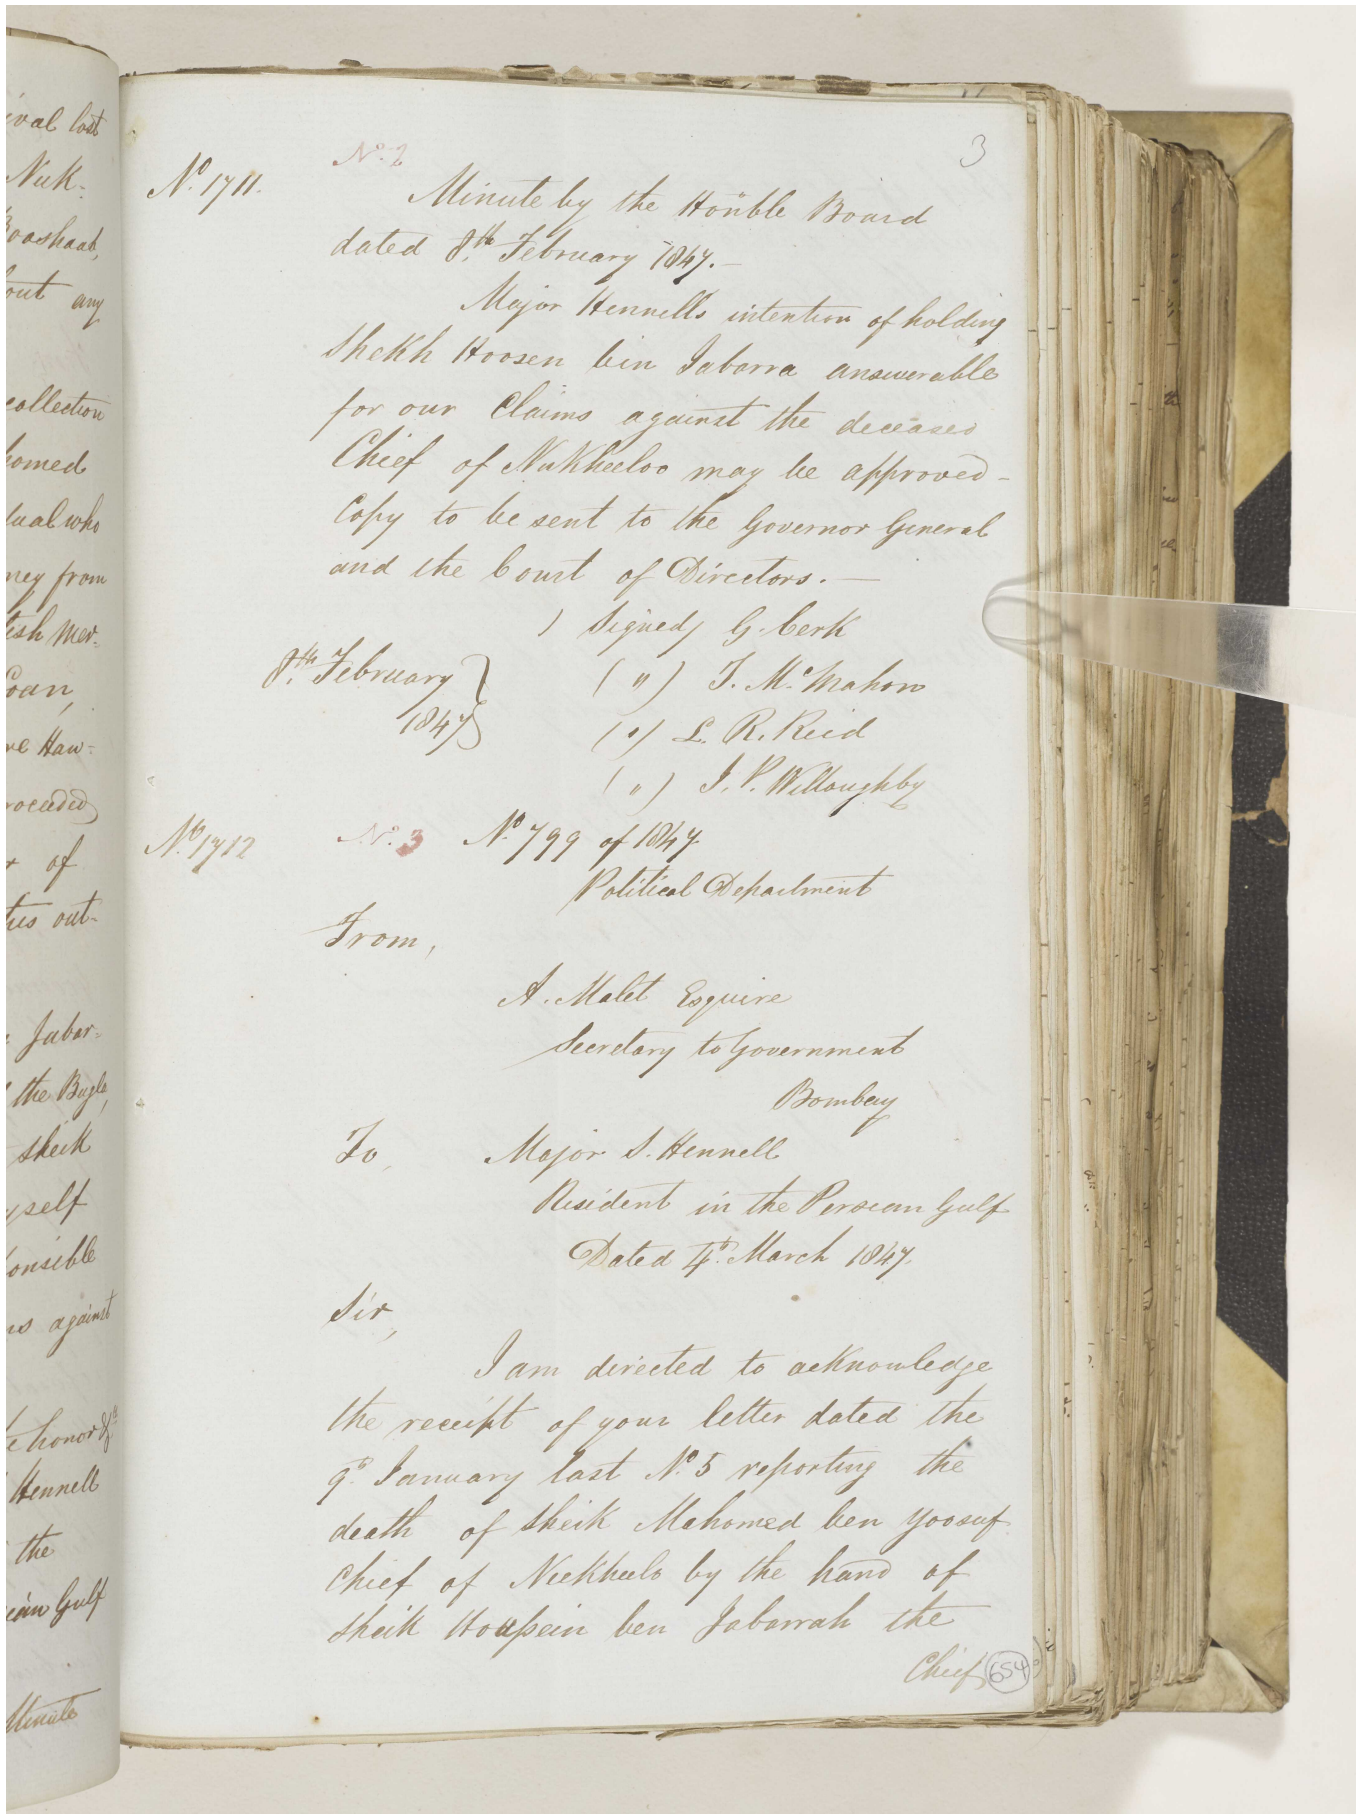 ival lost
Nuk-
Booshaab,
out any
collection
homed
dual who
ney from
tish Mer-
Goan,
re Haw-
roceeded
r of
tus out-
Jabar-
the Bugla,
Sheik
yself
onsible
ns against
e honor &ca
Hennell
the
ian Gulf
Minute
3
No. 2
No. 1711.
Minute by the Honble Board
dated 8th February 1847.—
Major Hennell's intention of holding
Shekh Hoosen bin Jabarra answerable
for our Claims against the deceased
Chief of Nukheeloo may be approved—
Copy to be sent to the Governor General
and the Court of Directors.—
) Signed / G. Cerk
8th February } ( " ) T. Mc Mahon
1847 } ( " ) L. R. Reid
( " ) J. P. Willoughby
No. 1712 No. 3 No. 799 of 1847
Political Department
From,
A. Malet Esquire
Secretary to Government
Bombay
To, Major S. Hennell
Resident in the Persian Gulf
Dated 4th March 1847.
Sir,
I am directed to acknowledge
the receipt of your letter dated the
9th January last No. 5 reporting the
death of Sheik Mahomed ben Yoosuf
Chief of Nukheelo by the hand of
Sheik Houssein ben Jabarrah the
Chief 654